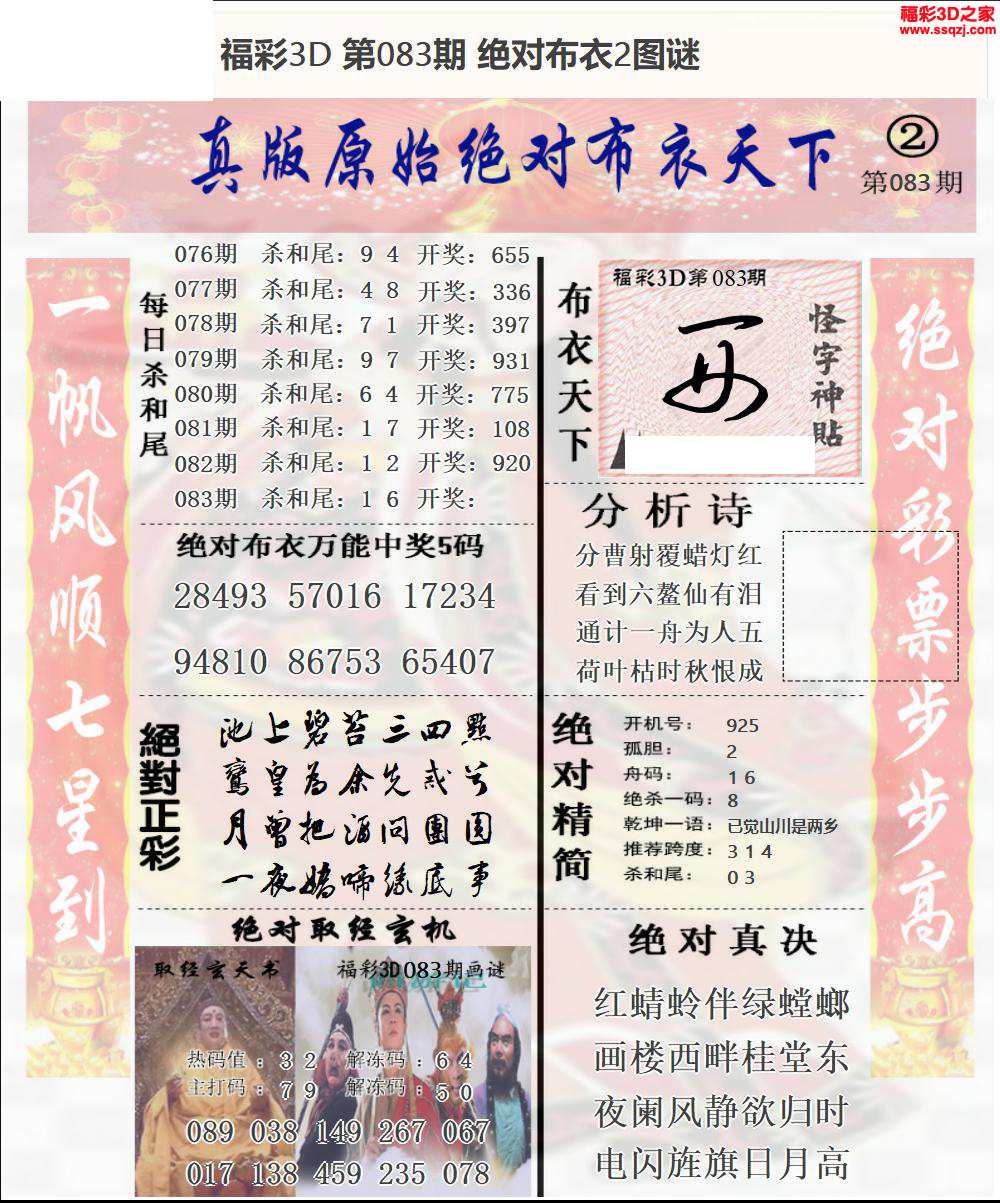 福彩3D之家
www.ssqzj.com
福彩3D 第083期 绝对布衣2图谜
真版原始绝对布衣天下
②
第083期
一帆风顺七星到
每日杀和尾
076期 杀和尾：9 4 开奖：655
077期 杀和尾：4 8 开奖：336
078期 杀和尾：7 1 开奖：397
079期 杀和尾：9 7 开奖：931
080期 杀和尾：6 4 开奖：775
081期 杀和尾：1 7 开奖：108
082期 杀和尾：1 2 开奖：920
083期 杀和尾：1 6 开奖：
绝对布衣万能中奖5码
28493 57016 17234
94810 86753 65407
絕對正彩
池上碧苔三四點
鸞皇為余先戒兮
月曾把酒问團圆
一夜嬌啼缘底事
绝对取经玄机
取经玄天书
福彩3D083期画谜
热码值：3 2 解冻码：6 4
主打码：7 9 解冻码：5 0
089 038 149 267 067
017 138 459 235 078
布衣天下
福彩3D第083期
怪字神貼
分析诗
分曹射覆蜡灯红
看到六鳌仙有泪
通计一舟为人五
荷叶枯时秋恨成
绝对精简
开机号：925
孤胆：2
舟码：1 6
绝杀一码：8
乾坤一语：已觉山川是两乡
推荐跨度：3 1 4
杀和尾：0 3
绝对真决
红蜻蛉伴绿螳螂
画楼西畔桂堂东
夜阑风静欲归时
电闪旌旗日月高
绝对彩票步步高